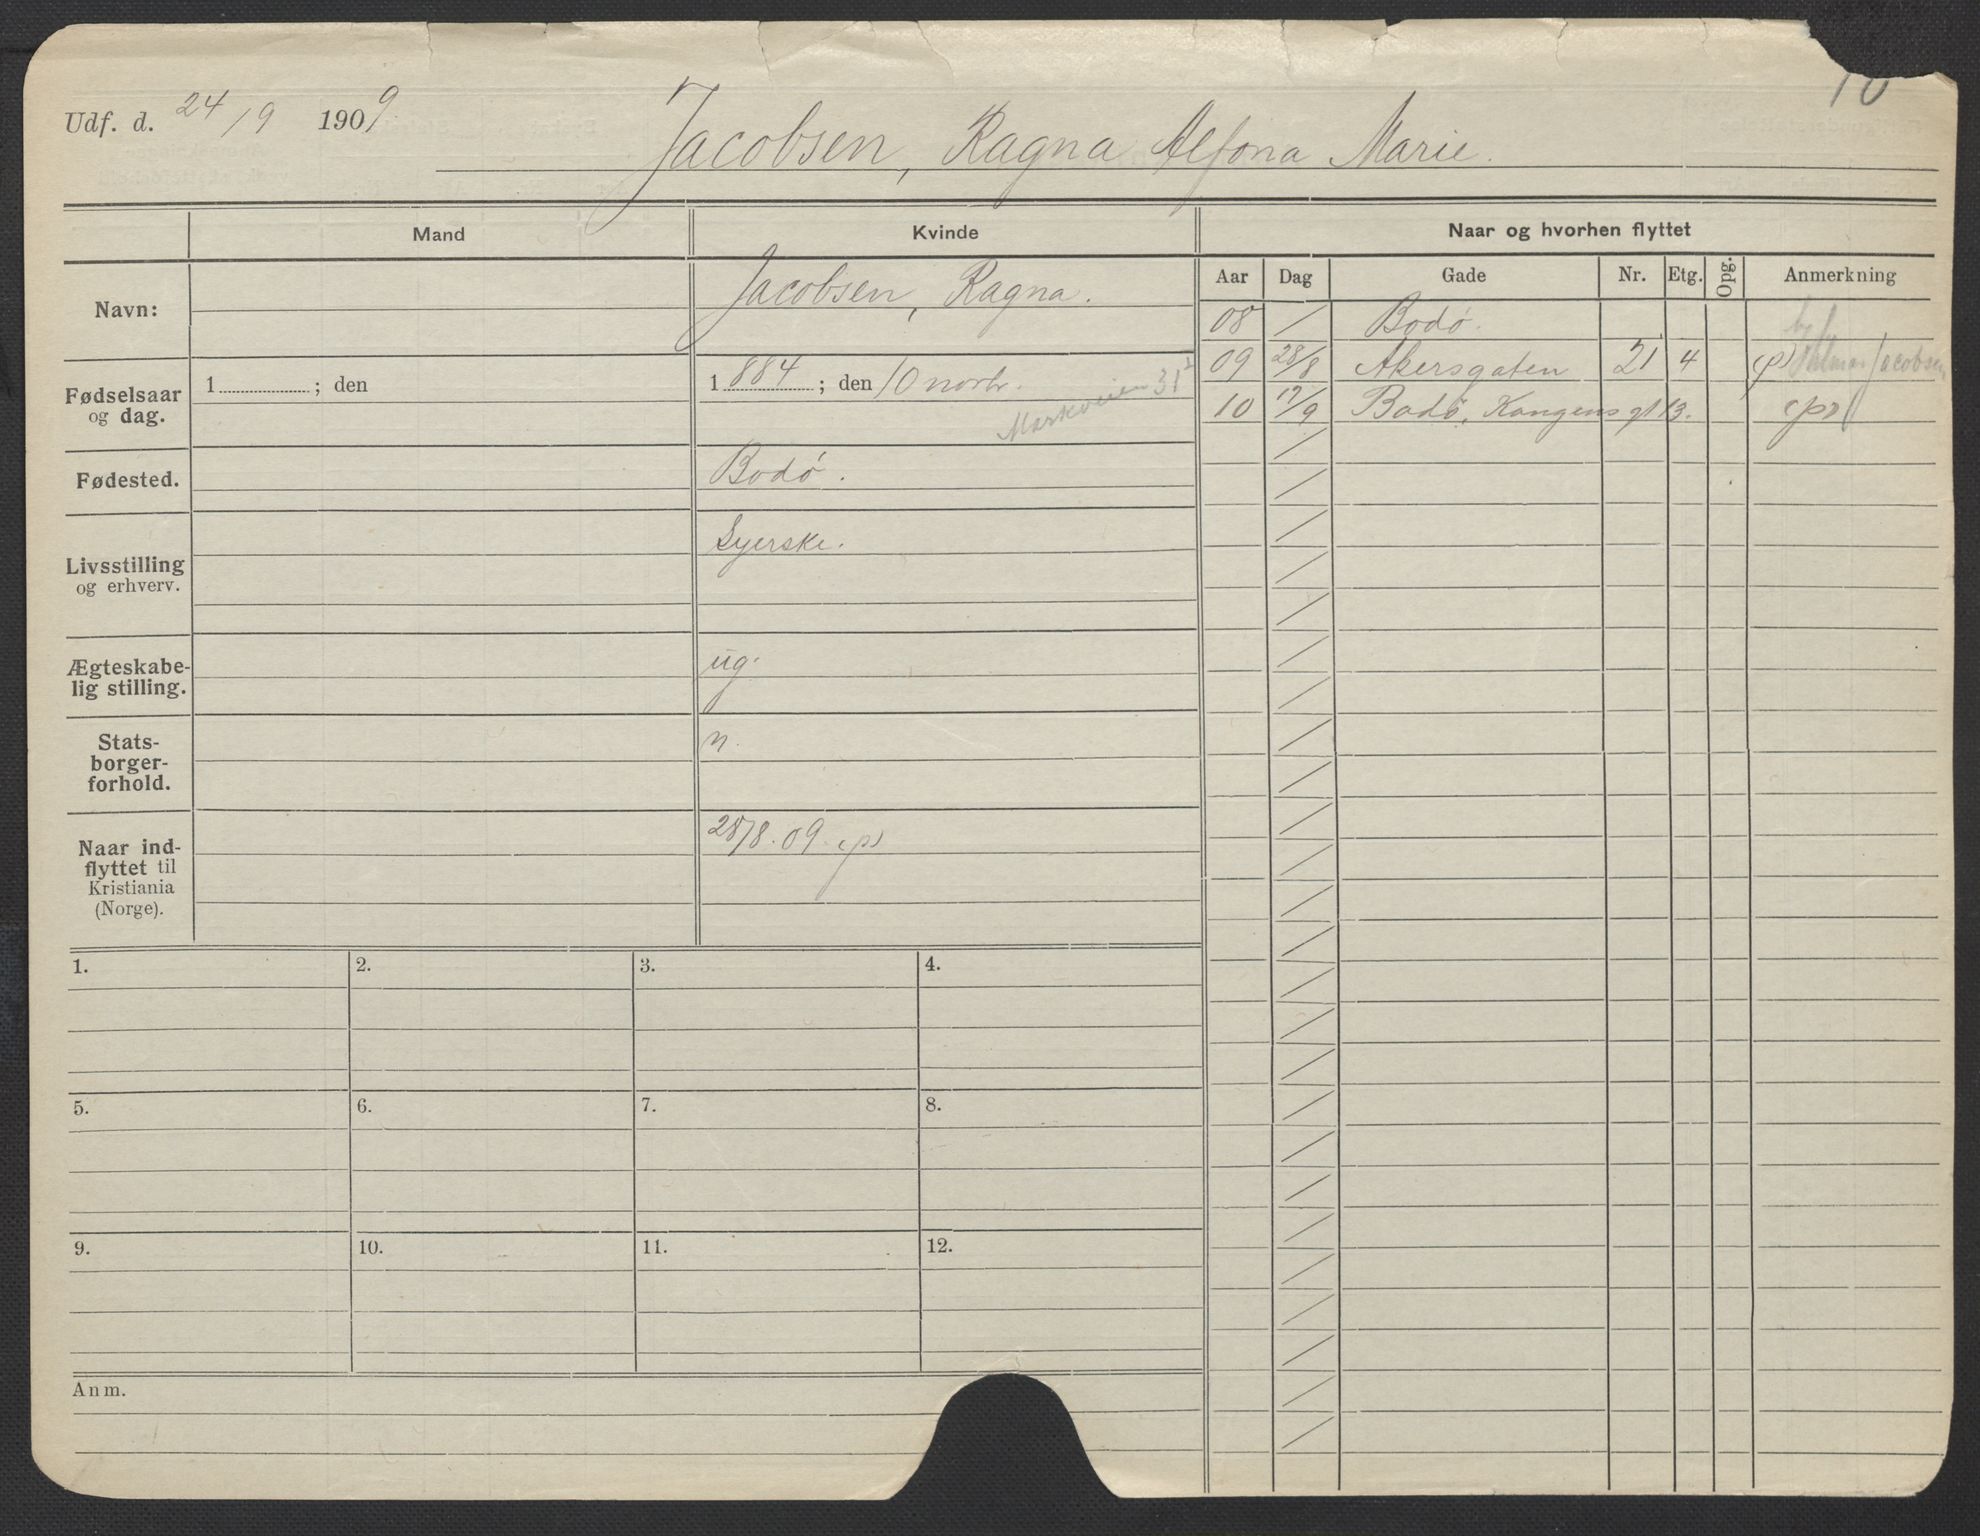 10
Udf. d. 24/9 1909.
Jacobsen, Ragna Alfona Marie.
Mand
Kvinde
Naar og hvorhen flyttet
Aar Dag Gade Nr. Etg. Opg. Anmerkning
Navn:
Jacobsen, Ragna.
Fødselsaar
og dag.
1 ; den
1884 ; den 10 novbr.
Markveien 31²
Fødested.
Bodø.
Livsstilling
og erhverv.
Syerske.
Ægteskabe-
lig stilling.
ug.
Stats-
borger-
forhold.
n.
Naar ind-
flyttet til
Kristiania
(Norge).
28/8.09. (p)
08 / Bodø.
09 28/8 Akersgaten 21 4 (p) Jacobsen
10 17/9 Bodø, Kongens gt 13. (ps)
1. 2. 3. 4.
5. 6. 7. 8.
9. 10. 11. 12.
Anm.